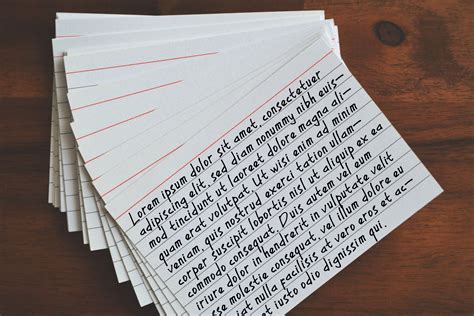 Lorem ipsum dolor sit amet, consectetuer
adipiscing elit, sed diam nonummy nibh euis—
mod tincidunt ut laoreet dolore magna ali—
quam erat volutpat. Ut wisi enim ad minim
veniam, quis nostrud exerci tation ullam—
corper suscipit lobortis nisl ut aliquip ex ea
commodo consequat. Duis autem vel eum
iriure dolor in hendrerit in vulputate velit
esse molestie consequat, vel illum dolore eu
iat nulla facilisis at vero eros et ac—
et iusto odio dignissim qui.